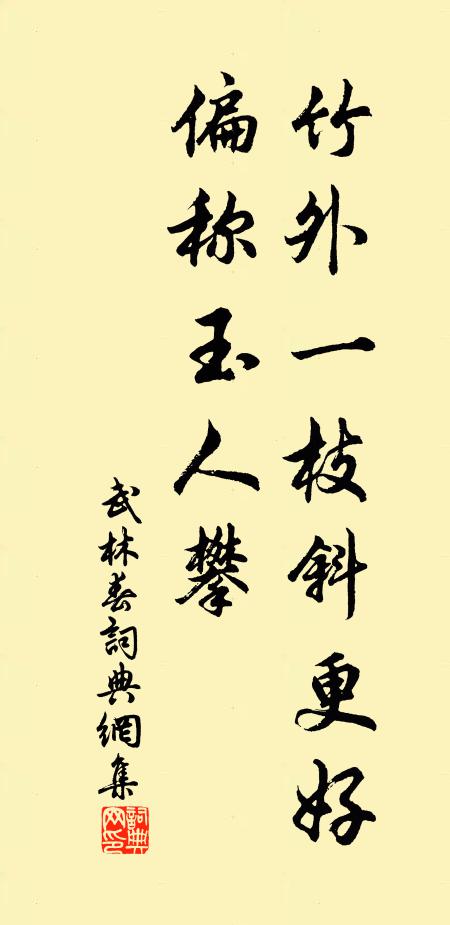 竹外一枝斜更好
偏称玉人攀
武林春詞典網集
詞典网印